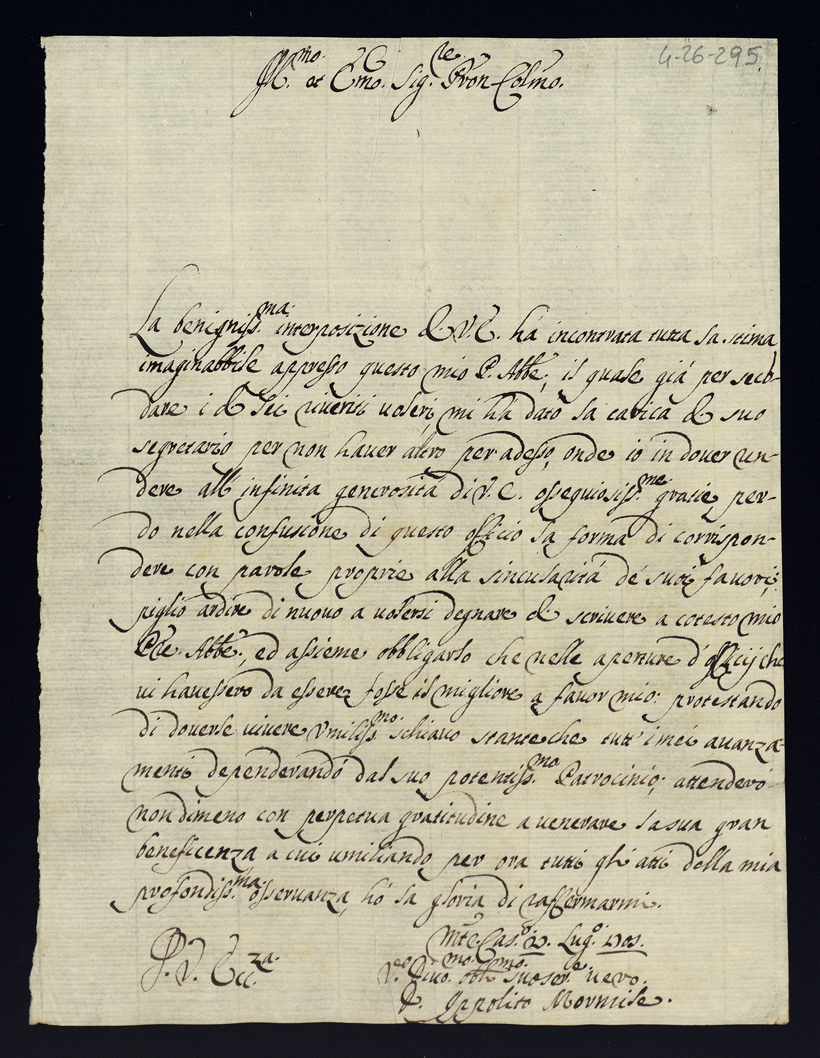 4-26-295
Ill.mo et Ecc.mo Sig.re Pron Colmo.
La benigniss.ma interposizione di V.E. hà incontrata tutta la stima
imaginabbile appresso questo mio P. Abbe, il quale già per secon-
dare i di Lei riveriti voleri, mi hà dato la carica di suo
segretario per non haver altro per adesso, onde io in dover ren-
dere all'infinita generosità di V.E. ossequiosiss.me gratie, per-
do nella confusione di questo officio la forma di corrispon-
dere con parole proprie alla singularità de suoi favori;
piglio ardire di nuovo a volersi degnare di scrivere a cotesto mio
P're. Abbe, ed assieme obbligarlo che nelle aperture d'officij che
vi havessero da essere, fosse il migliore a favor mio: protestando
di doverle vivere Umiliss.mo schiavo stante che tutt'i miei avanza-
menti dependerando dal suo potentiss.mo Patrocinio; attenderò
nondimeno con perpetua gratitudine a venerare la sua gran
beneficenza a cui umiliando per ora tutti gli atti della mia
profondiss.ma osservanza, hò la gloria di raffermarmi.
Mte. Cas.o Lug.o
D. V. Ecc.za
Ippolito Mormile.